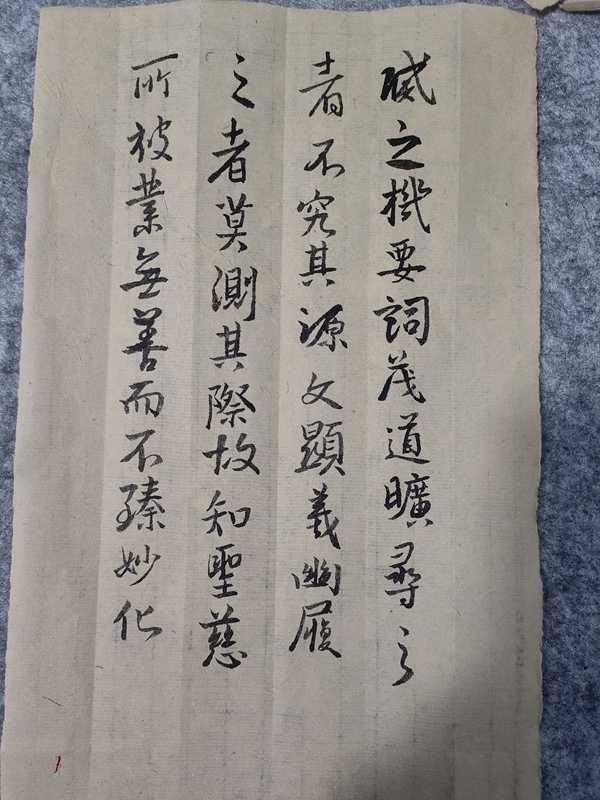 賊之機要詞茂道曠尋之
者不究其源文顯義幽履
之者莫測其際故知聖慈
所被業無善而不臻妙化